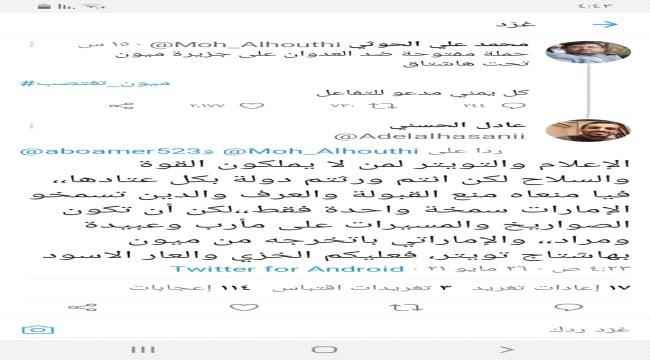 ٤:٤٣
غرّد
محمد علي الحوثي @Moh_Alhouthi · ١٥ س
حملة مفتوحة ضد العدوان على جزيرة ميون
تحت هاشتاق
#ميون_تغتصب
كل يمني مدعو للتفاعل
٢٤٤ ٧٣٠ ٢،١٧٧
عادل الحسني
@Adelalhasanii
ردا على @Moh_Alhouthi و@aboamer523
الإعلام والتويتر لمن لا يملكون القوة
والسلاح لكن انتم ورثتم دولة بكل عتادها،،
فيا منعاه منع القبولة والعرف والدين تسمخو
الإمارات سمخة واحدة فقط،،لكن أن تكون
الصواريخ والمسيرات على مأرب وعبيدة
ومراد،، والإماراتي باتخرجه من ميون
بهاشتاج تويتر، فعليكم الخزي والعار الاسود
٤:٢٣ ص · ٢٦ مايو ٢١ · Twitter for Android
١٧ إعادات تغريد ٣ تغريدات اقتباس ١١٤ إعجابات
غرد ردك